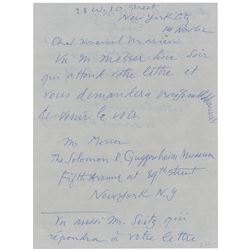 28 W. 10 Street
New York City
10 Nov 62
Cher Marcel Mariën
Vu M Messer hier soir
qui attend votre lettre et
vous demandera
de venir le voir.
Mr Messer
The Solomon R. Guggenheim Museum
Fifth Avenue at 89th Street
New York N.Y
Vu aussi Mr. Seitz qui
répondra à votre lettre